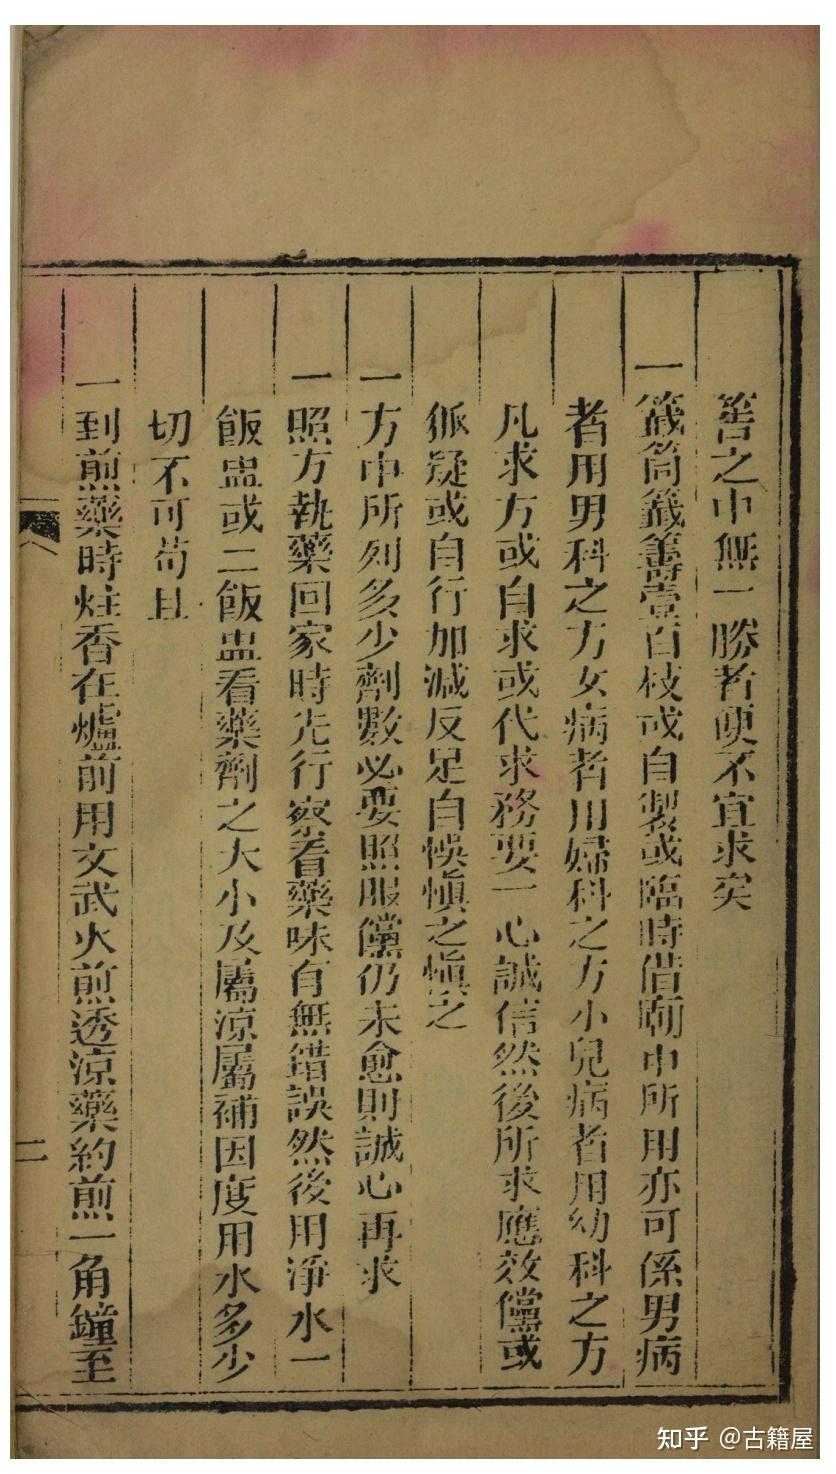 筶之中無一勝者便不宜求矣
一籤筒籤籌壹百枝或自製或臨時借廟中所用亦可係男病
者用男科之方女病者用婦科之方小兒病者用幼科之方
凡求方或自求或代求務要一心誠信然後所求應效儻或
狐疑或自行加減反足自悞愼之愼之
一方中所列多少劑數必要照服儻仍未愈則誠心再求
一照方執藥回家時先行察看藥味有無錯誤然後用淨水一
飯盅或二飯盅看藥劑之大小及屬涼屬補因度用水多少
切不可苟且
一到煎藥時炷香在爐前用文武火煎透涼藥約煎一角鐘至
二
知乎 @古籍屋